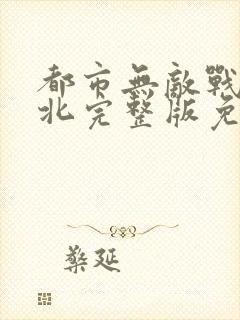 都市無敵戰
北完整版免
檠延